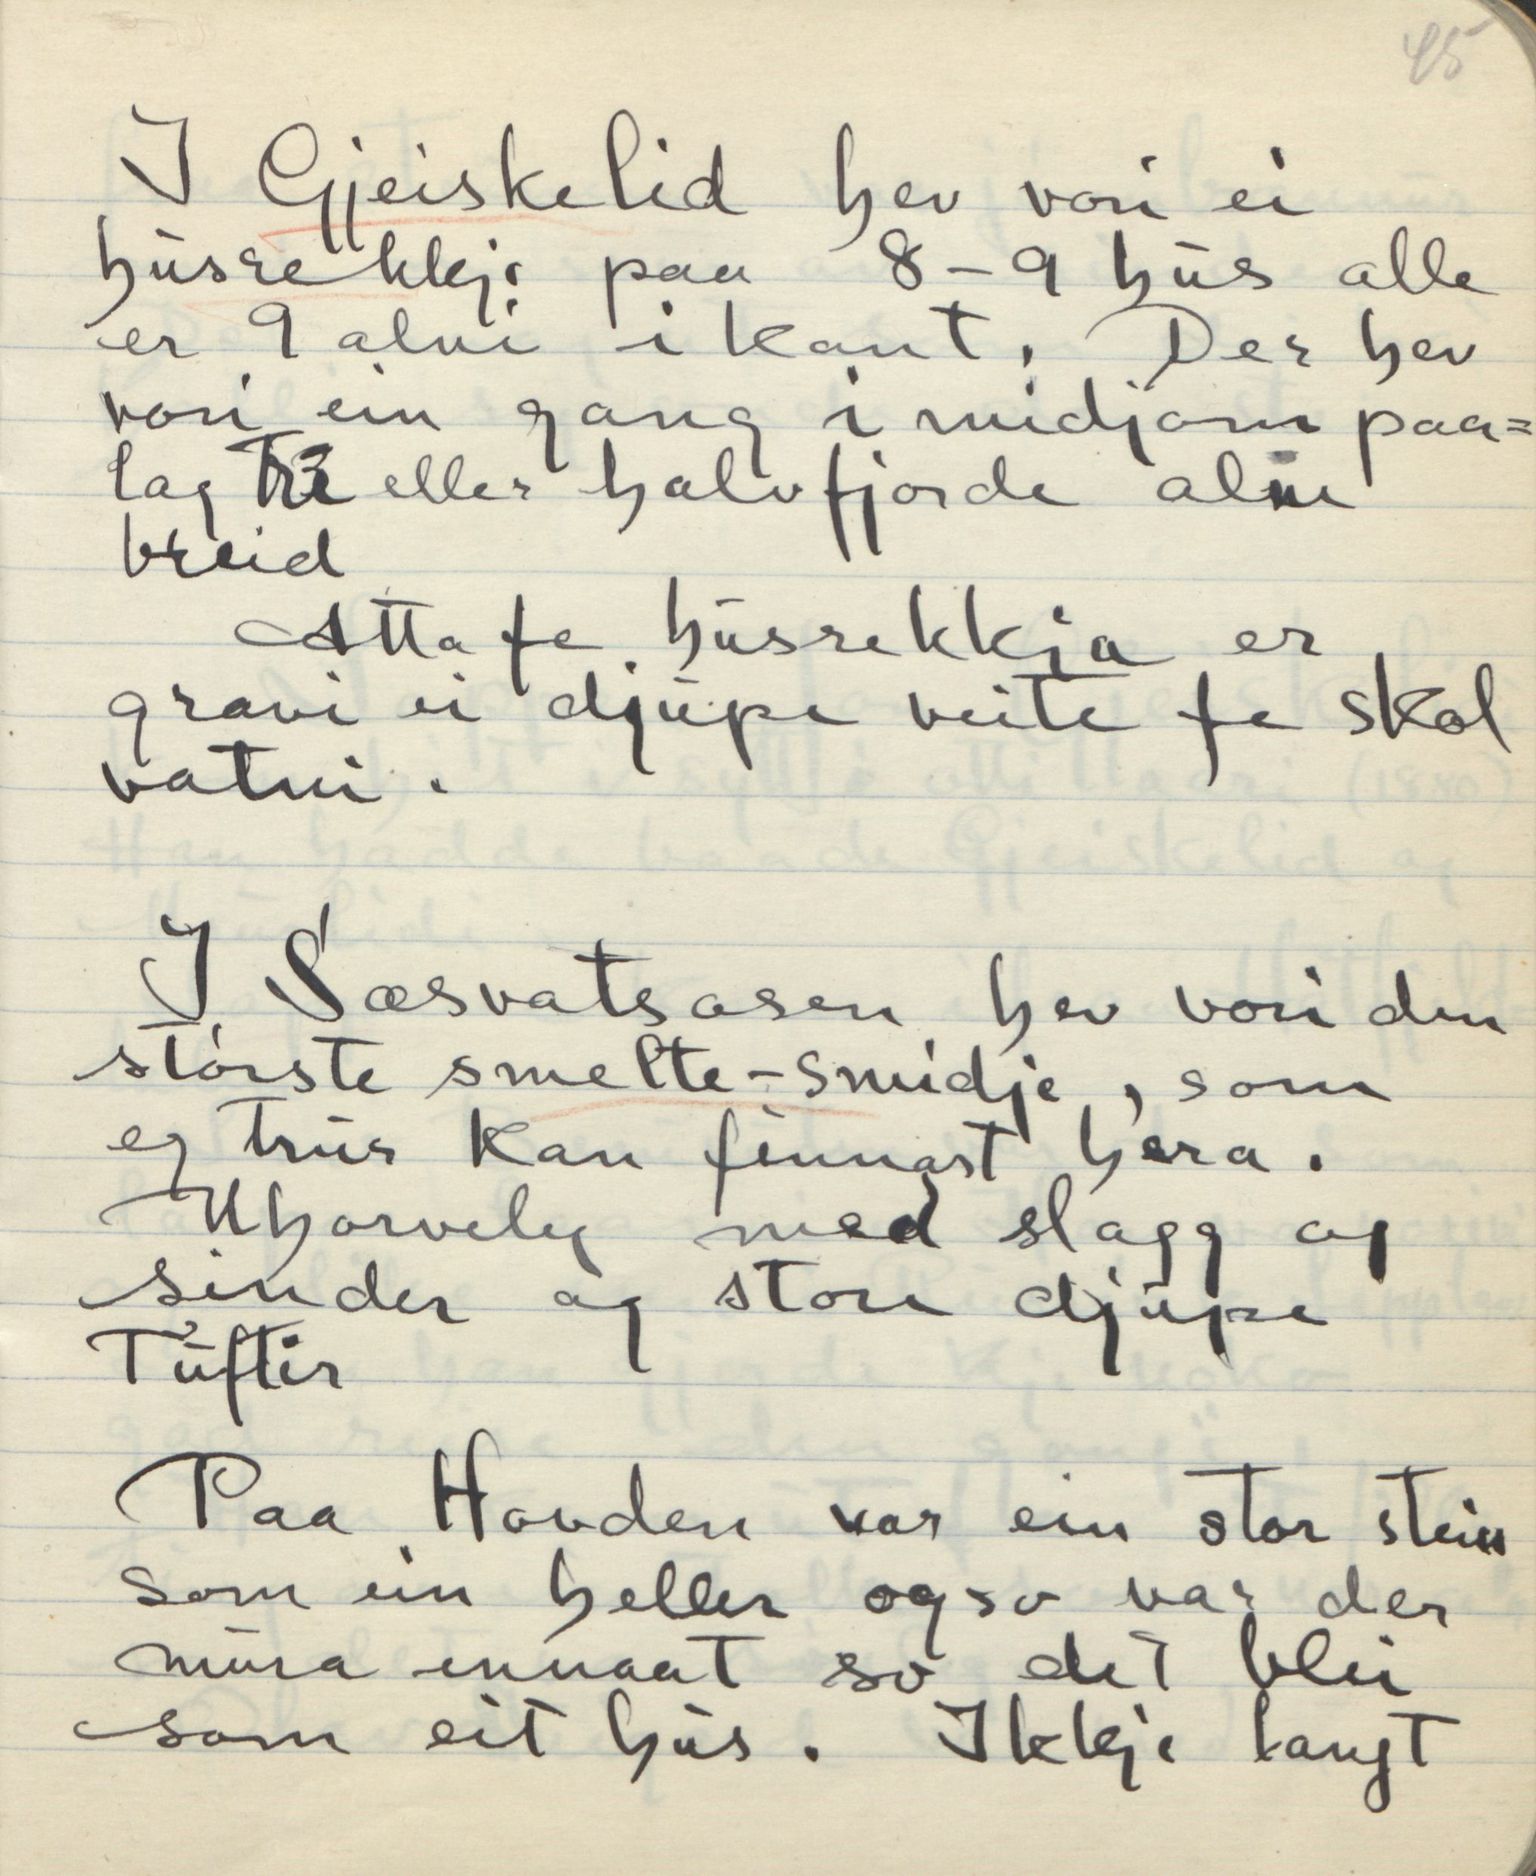 45
I Gjeiskelid hev vori ei
husrekkje paa 8-9 hus alle
er 9 alni i kant. Der hev
vori ein gang i midjom paa=
lag tri eller halvfjorde alne
breid
Atta fe husrekkja er
gravi ei djupe veite fe skol
vatni.
I Sæsvatsosen hev vori den
störste smelte-smidje, som
eg trur kan finnast hera.
Uhorveleg med slagg og
sinder og store djupe
Tuftir
Paa Hovden var ein stor stein
som ein heller ogso var der
mura innaat so det blei
som eit hus. Ikkje langt